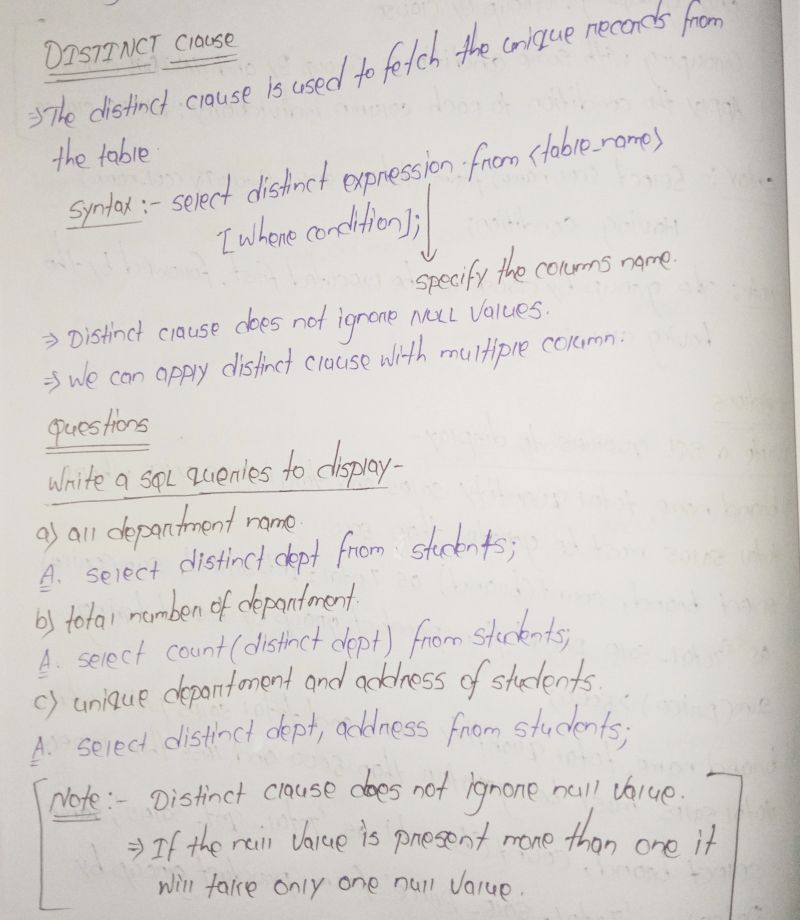 DISTINCT Clause
⇒ The distinct clause is used to fetch the unique records from
the table.
Syntax :- select distinct expression from <table_name>
[where condition];
specify the colums name.
⇒ Distinct clause does not ignore NULL values.
⇒ We can apply distinct clause with multiple column.
Questions
Write a SQL queries to display-
a) all department name.
A. select distinct dept from students;
b) total number of department.
A. select count(distinct dept) from students;
c) unique department and address of students.
A. select distinct dept, address from students;
Note :- Distinct clause does not ignore null value.
⇒ If the null value is present more than one it
will take only one null value.